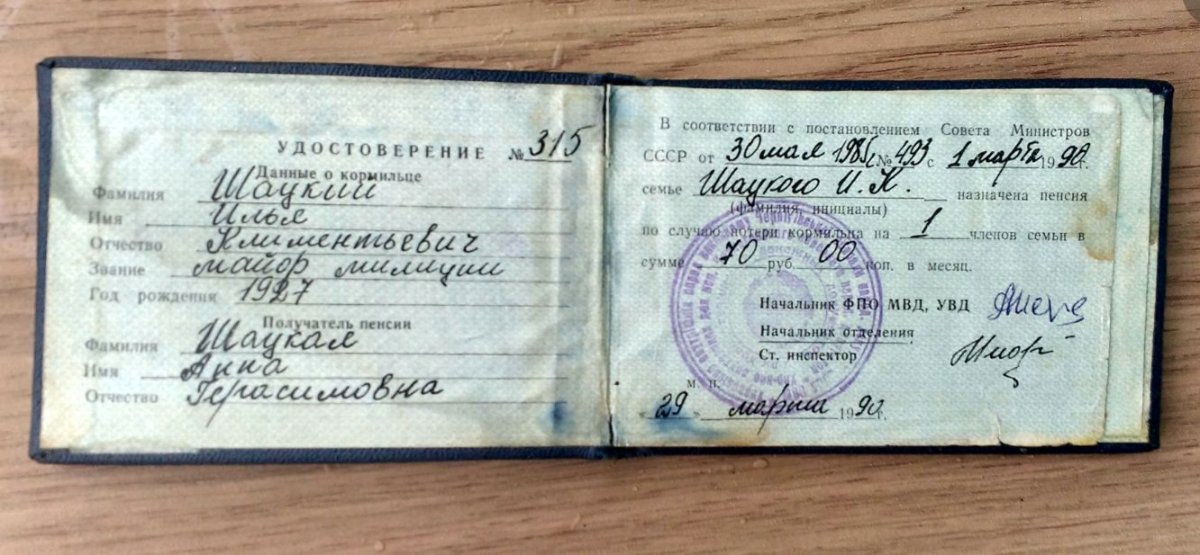 УДОСТОВЕРЕНИЕ № 315
Данные о кормильце
Фамилия Шацкий
Имя Илья
Отчество Климентьевич
Звание майор милиции
Год рождения 1927
Получатель пенсии
Фамилия Шацкая
Имя Анна
Отчество Герасимовна
В соответствии с постановлением Совета Министров
СССР от 30 мая 1985г № 493 с 1 марта 1990г.
семье Шацкого И. К. назначена пенсия
(фамилия, инициалы)
по случаю потери кормильца на 1 членов семьи в
сумме 70 руб. 00 коп. в месяц.
Начальник ФПО МВД, УВД
Начальник отделения
Ст. инспектор
м. п.
29 марта 1990г.